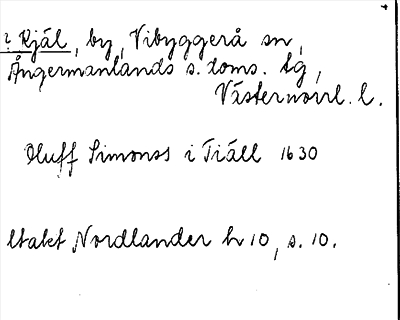 i Kjäl, by, Vibyggerå sn,
Ångermanlands s. doms. tg,
Västernorrl. l.
Oluff Simonss i Tiäll 1630
ltakt Nordlander h 10, s. 10.